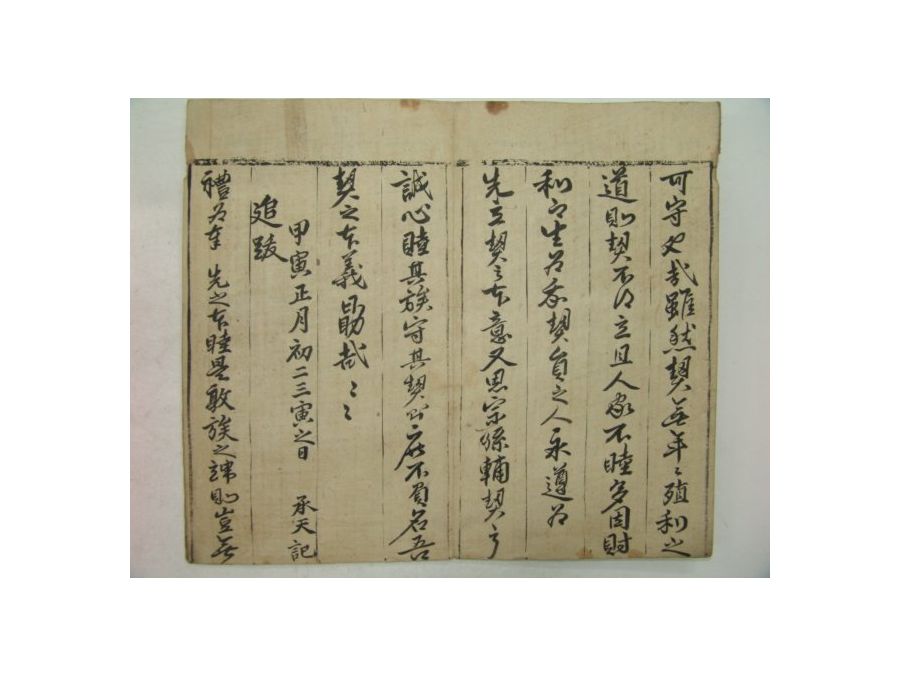 可守也哉雖然契無年〻殖利之
道則契不得立且人家不睦多因財
利而生為吾契員之人永遵為
先立契之本意又思宗孫輔契之
誠心睦其族守其契則庶不負名吾
契之本義勖哉〻〻
甲寅正月初二三寅之日 承天記
追跋
禮為奉先之本睦是敦族之 則豈無